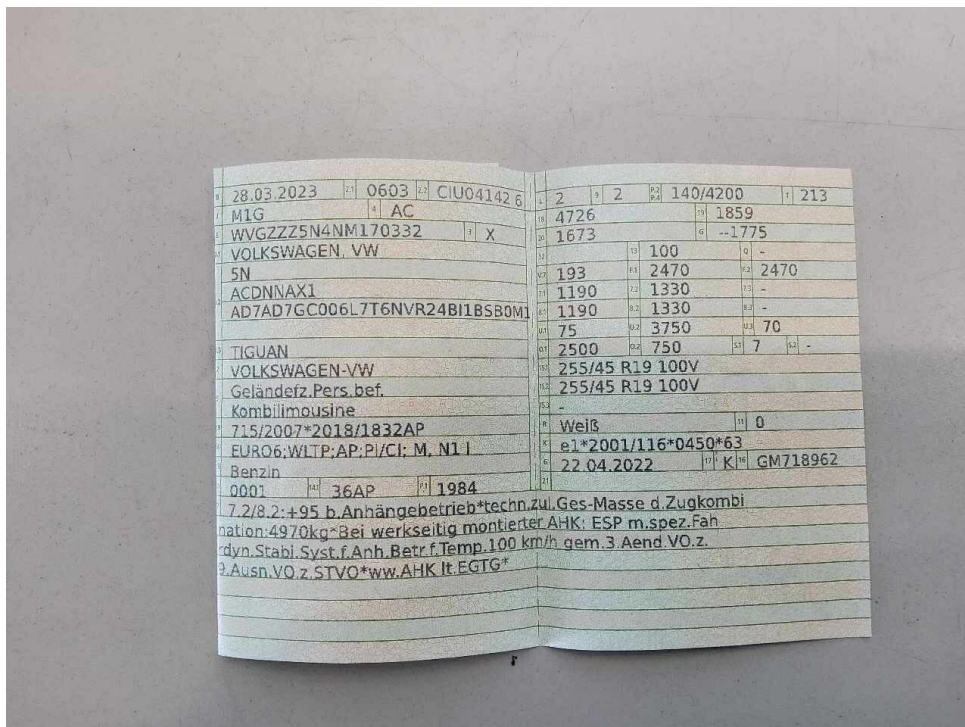 28.03.2023 2.1 0603 2.2 CIU04142 6
M1G 4 AC
WVGZZZ5N4NM170332 3 X
VOLKSWAGEN, VW
5N
ACDNNAX1
AD7AD7GC006L7T6NVR24BI1BSB0M1
TIGUAN
VOLKSWAGEN-VW
Geländefz.Pers.bef.
Kombilimousine
715/2007*2018/1832AP
EURO6;WLTP;AP;PI/CI; M, N1 I
Benzin
0001 14.1 36AP P.1 1984
L 2 9 2 P.2 P.4 140/4200 T 213
18 4726 19 1859
20 1673 G --1775
12 13 100 Q -
V.7 193 F.1 2470 F.2 2470
7.1 1190 7.2 1330 7.3 -
8.1 1190 8.2 1330 8.3 -
U.1 75 U.2 3750 U.3 70
O.1 2500 O.2 750 S.1 7 S.2 -
15.1 255/45 R19 100V
15.2 255/45 R19 100V
15.3 -
R Weiß 11 0
K e1*2001/116*0450*63
6 22.04.2022 17 K 16 GM718962
21
7.2/8.2:+95 b.Anhängebetrieb*techn.zul.Ges-Masse d.Zugkombi
nation:4970kg*Bei werkseitig montierter AHK: ESP m.spez.Fah
rdyn.Stabi.Syst.f.Anh.Betr.f.Temp.100 km/h gem.3.Aend.VO.z.
9.Ausn.VO.z.STVO*ww.AHK lt.EGTG*